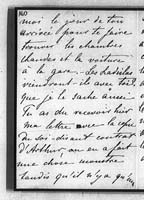 160
moi le jour de ton
arrivée pour te faire
trouver les chambres
chaudes et la voiture
à la gare. Les habités
viendront-ils avec toi,
que je le sache aussi.
Tu as du recevoir hier
ma lettre avec la copie
du soi-disant contrat
d'Arthur, on en a fait
une chose monstre
tandis qu'il n'y a qu'un